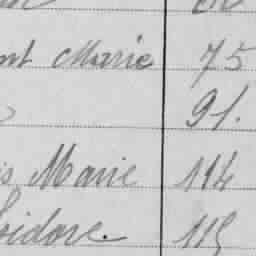 nt Marie 75
91.
s Marie 114
sidore. 115